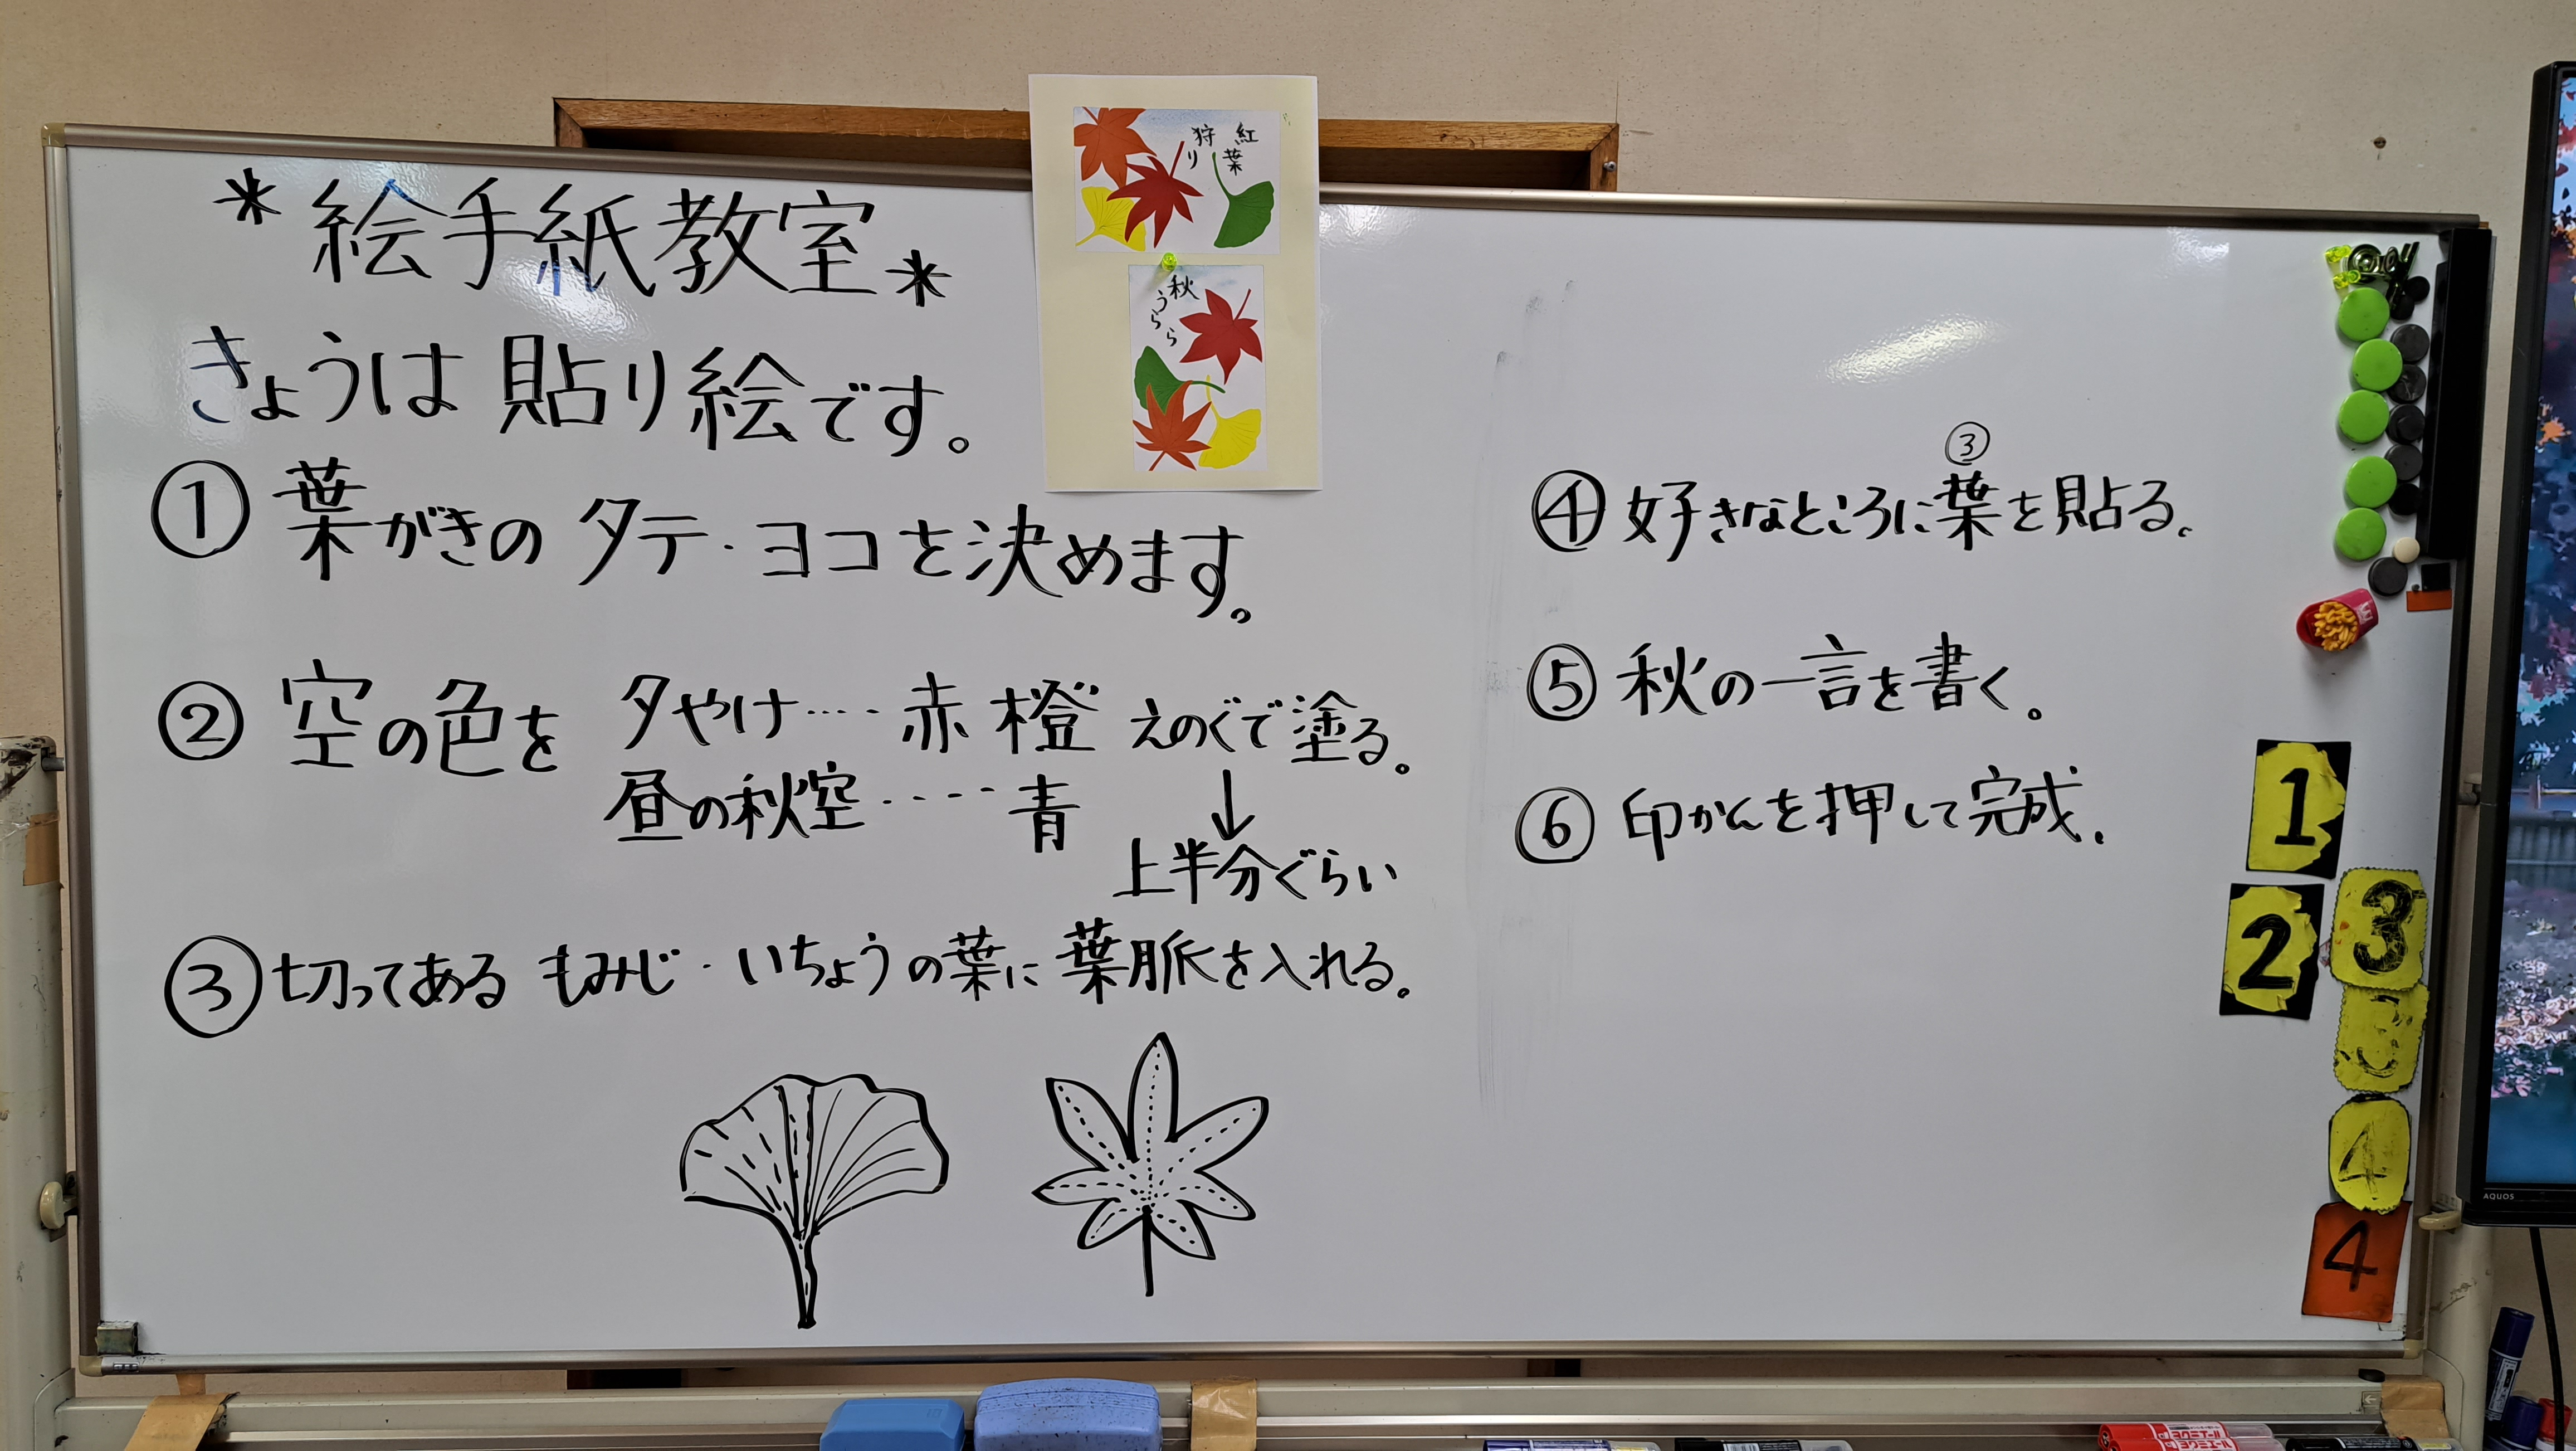 *絵手紙教室*
きょうは 貼り絵です。
① 葉がきの タテ・ヨコを決めます。
② 空の色を 夕やけ‥‥赤 橙 えのぐで塗る。
昼の秋空‥‥‥青
↓
上半分ぐらい
③ 切ってある もみじ・いちょうの葉に 葉脈を入れる。
紅葉
狩り
秋
うらら
③
④ 好きなところに葉を貼る。
⑤ 秋の一言を書く。
⑥ 印かんを押して完成.
1
2
3
4
4
AQUOS